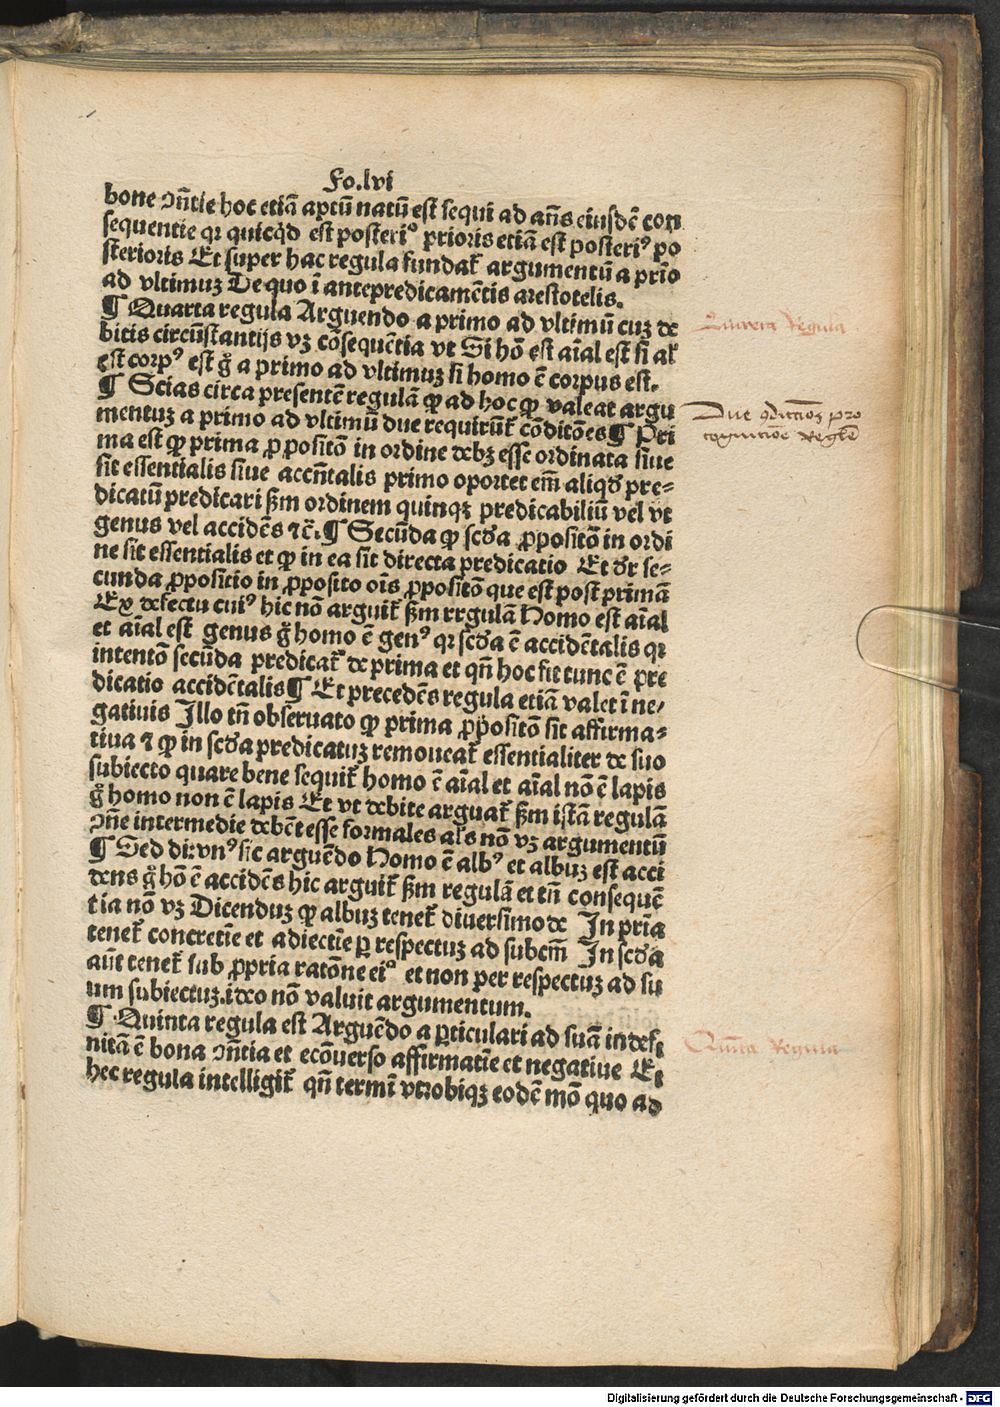 Fo.lvi
bone ↄñtie hoc etiã aptũ natũ est sequi ad añs eiusdẽ con
sequentie qꝛ quicq̃d est posteriꝰ prioris etiã est posteriꝰ po
sterioris Et super hac regula fundat᷑ argumentũ a prĩo
ad vltimuꝫ De quo ĩ antepredicamẽtis arestotelis.
¶ Quarta regula Arguendo a primo ad vltimũ cuꝫ de
bitis circũstantijs vꝫ cõsequẽtia vt Si hõ est aĩal est si aĩ
est corpꝰ est g̊ a primo ad vltimuꝫ si homo ẽ corpus est.
¶ Scias circa presentẽ regulã ꝙ ad hoc ꝙ valeat argu
mentuꝫ a primo ad vltimũ due requirũt᷑ cõditões ¶ Pri
ma est ꝙ prima ꝓpositõ in ordine debꝫ esse ordinata siue
sit essentialis siue accñtalis primo oportet em̃ aliqd̕ pre⸗
dicatũ predicari ẜm ordinem quinqꝫ predicabiliũ vel vt
genus vel accidẽs ⁊c̃. ¶ Secũda ꝙ scd̕a ꝓpositõ in ordi
ne sit essentialis et ꝙ in ea sit directa predicatio Et dr̕ se⸗
cunda ꝓpositio in ꝓposito oĩs ꝓpositõ que est post primã
Ex defectu cuiꝰ hic nõ arguit᷑ ẜm rrgulã Homo est aĩal
et aĩal est genus g̊ homo ẽ genꝰ qꝛ scd̕a ẽ accidẽtalis qꝛ
intentõ secũda predicat᷑ de prima et qñ hoc fit tunc ẽ pre
dicatio accidẽtalis ¶ Et precedẽs regula etiã valet ĩ ne⸗
gatiuis Illo tñ obseruato ꝙ prima ꝓpositõ sit affirma⸗
tiua ⁊ ꝙ in scd̕a predicatuꝫ remoueat᷑ essentialiter de suo
subiecto quare bene sequit᷑ homo ẽ aĩal et aĩal nõ ẽ lapis
g̊ homo non ẽ lapis Et vt debite arguat᷑ ẜm istã regulã
ↄñe intermedie debẽt esse formales als nõ vꝫ argumentũ
¶ Sed di: vnꝰ sic arguẽdo Homo ẽ albꝰ et albuꝫ est acci
dens g̊ hõ ẽ accidẽs hic arguit᷑ ẜm regulã et tñ consequẽ
tia nõ vꝫ Dicenduꝫ ꝙ albuꝫ tenet᷑ diuersimode In prĩa
tenet᷑ concretiẽ et adiectiẽ ꝑ respectuꝫ ad subcm̃ In scd̕a
aũt tenet᷑ sub ꝓpria ratõne eiꝰ et non per respectuꝫ ad su
um subiectuꝫ.ideo nõ valuit argumentum.
¶ Quinta regula est Arguẽdo a ꝑticulari ad suã indefi
nitã ẽ bona ↄñtia et ecõuerso affirmatiẽ et negatiue Et
hec regula intelligit᷑ qñ termĩ vtrobiqꝫ eodẽ mõ quo ad
Quarta Regula
Due ↄdictiões pro
cognitiõe Regłe
Quĩta Regula
Digitalisierung gefördert durch die Deutsche Forschungsgemeinschaft - DFG